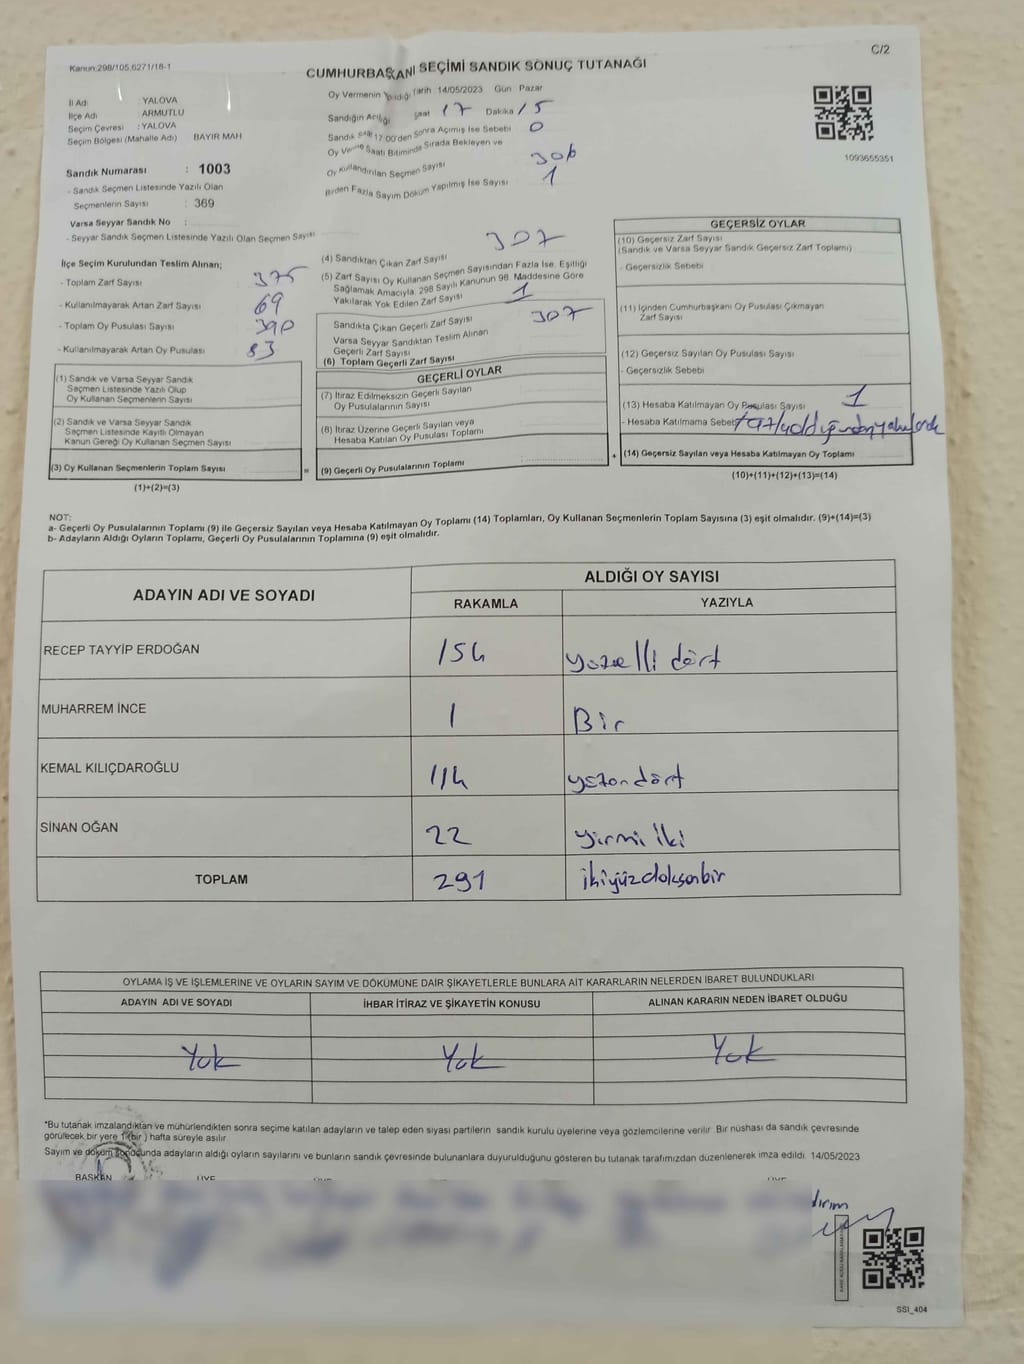 C/2
Kanun:298/105,6271/18-1
CUMHURBAŞKANI SEÇİMİ SANDIK SONUÇ TUTANAĞI
İl Adı : YALOVA
İlçe Adı : ARMUTLU
Seçim Çevresi : YALOVA
Seçim Bölgesi (Mahalle Adı) BAYIR MAH
Sandık Numarası : 1003
- Sandık Seçmen Listesinde Yazılı Olan
Seçmenlerin Sayısı : 369
Varsa Seyyar Sandık No :
- Seyyar Sandık Seçmen Listesinde Yazılı Olan Seçmen Sayısı
Oy Vermenin Yapıldığı Tarih 14/05/2023 Gün Pazar
Sandığın Açılığı Saat 17 Dakika 15
Sandık Saat 17:00'den Sonra Açımış İse Sebebi 0
Oy Verme Saati Bitiminde Sırada Bekleyen ve
Oy Kullandırılan Seçmen Sayısı 306
Birden Fazla Sayım Döküm Yapılmış İse Sayısı 1
1093655351
İlçe Seçim Kurulundan Teslim Alınan;
- Toplam Zarf Sayısı 375
- Kullanılmayarak Artan Zarf Sayısı 69
- Toplam Oy Pusulası Sayısı 390
- Kullanılmayarak Artan Oy Pusulası 83
(1) Sandık ve Varsa Seyyar Sandık
Seçmen Listesinde Yazılı Olup
Oy Kullanan Seçmenlerin Sayısı
(2) Sandık ve Varsa Seyyar Sandık
Seçmen Listesinde Kayıtlı Olmayan
Kanun Gereği Oy Kullanan Seçmen Sayısı
(3) Oy Kullanan Seçmenlerin Toplam Sayısı
(1)+(2)=(3)
(4) Sandıktan Çıkan Zarf Sayısı 307
(5) Zarf Sayısı Oy Kullanan Seçmen Sayısından Fazla İse, Eşitliği
Sağlamak Amacıyla, 298 Sayılı Kanunun 98. Maddesine Göre
Yakılarak Yok Edilen Zarf Sayısı 1
Sandıkta Çıkan Geçerli Zarf Sayısı 307
Varsa Seyyar Sandıktan Teslim Alınan
Geçerli Zarf Sayısı
(6) Toplam Geçerli Zarf Sayısı
=
GEÇERLİ OYLAR
(7) İtiraz Edilmeksizin Geçerli Sayılan
Oy Pusulalarının Sayısı
(8) İtiraz Üzerine Geçerli Sayılan veya
Hesaba Katılan Oy Pusulası Toplamı
(9) Geçerli Oy Pusulalarının Toplamı
+
GEÇERSİZ OYLAR
(10) Geçersiz Zarf Sayısı
(Sandık ve Varsa Seyyar Sandık Geçersiz Zarf Toplamı)
- Geçersizlik Sebebi
(11) İçinden Cumhurbaşkanı Oy Pusulası Çıkmayan
Zarf Sayısı
(12) Geçersiz Sayılan Oy Pusulası Sayısı
- Geçersizlik Sebebi
(13) Hesaba Katılmayan Oy Pusulası Sayısı 1
- Hesaba Katılmama Sebebi
(14) Geçersiz Sayılan veya Hesaba Katılmayan Oy Toplamı
(10)+(11)+(12)+(13)=(14)
NOT:
a- Geçerli Oy Pusulalarının Toplamı (9) ile Geçersiz Sayılan veya Hesaba Katılmayan Oy Toplamı (14) Toplamları, Oy Kullanan Seçmenlerin Toplam Sayısına (3) eşit olmalıdır. (9)+(14)=(3)
b- Adayların Aldığı Oyların Toplamı, Geçerli Oy Pusulalarının Toplamına (9) eşit olmalıdır.
ADAYIN ADI VE SOYADI
ALDIĞI OY SAYISI
RAKAMLA YAZIYLA
RECEP TAYYİP ERDOĞAN 154 yüzelli dört
MUHARREM İNCE 1 Bir
KEMAL KILIÇDAROĞLU 114 yüzon dört
SİNAN OĞAN 22 yirmi iki
TOPLAM 291 ikiyüzdoksanbir
OYLAMA İŞ VE İŞLEMLERİNE VE OYLARIN SAYIM VE DÖKÜMÜNE DAİR ŞİKAYETLERLE BUNLARA AİT KARARLARIN NELERDEN İBARET BULUNDUKLARI
ADAYIN ADI VE SOYADI İHBAR İTİRAZ VE ŞİKAYETİN KONUSU ALINAN KARARIN NEDEN İBARET OLDUĞU
Yok Yok Yok
*Bu tutanak imzalandıktan ve mühürlendikten sonra seçime katılan adayların ve talep eden siyasi partilerin sandık kurulu üyelerine veya gözlemcilerine verilir. Bir nüshası da sandık çevresinde
görülecek bir yere 1 (bir) hafta süreyle asılır.
Sayım ve döküm sonucunda adayların aldığı oyların sayılarını ve bunların sandık çevresinde bulunanlara duyurulduğunu gösteren bu tutanak tarafımızdan düzenlenerek imza edildi. 14/05/2023
BAŞKAN ÜYE
SSI_404